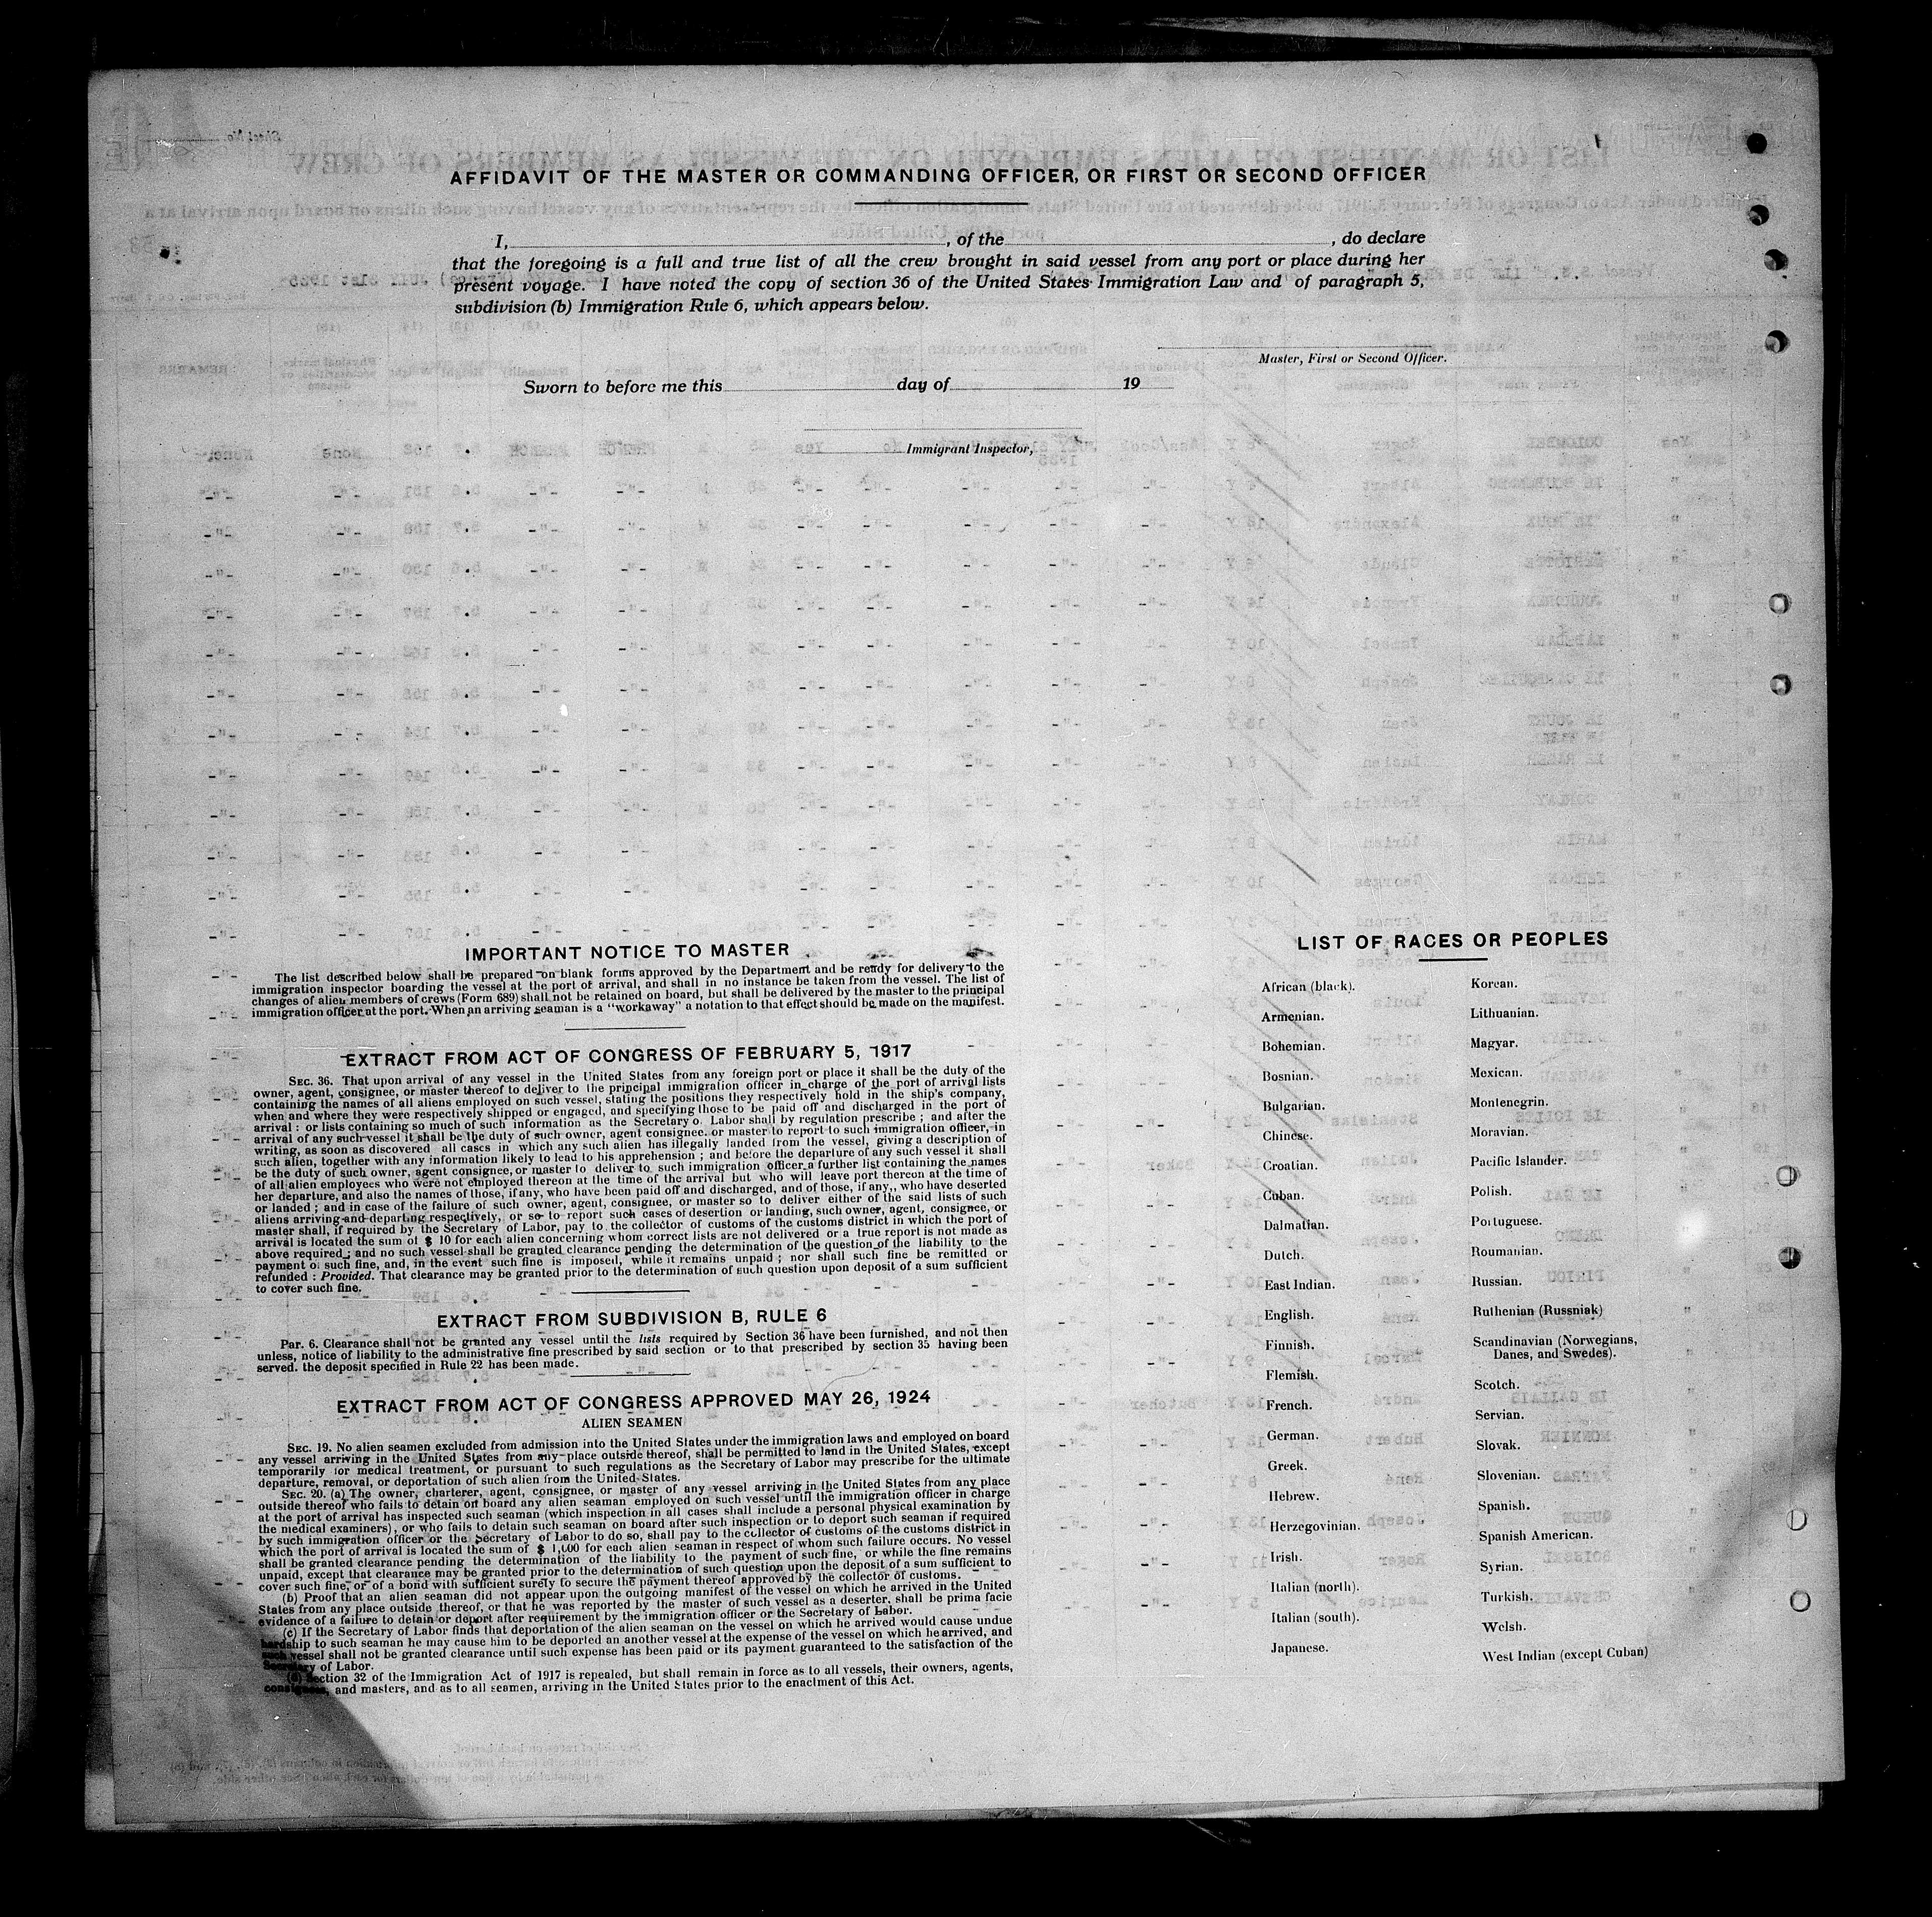 AFFIDAVIT OF THE MASTER OR COMMANDING OFFICER, OR FIRST OR SECOND OFFICER
I, , of the , do declare
that the foregoing is a full and true list of all the crew brought in said vessel from any port or place during her
present voyage. I have noted the copy of section 36 of the United States Immigration Law and of paragraph 5,
subdivision (b) Immigration Rule 6, which appears below.
Master, First or Second Officer.
Sworn to before me this day of 19
Immigrant Inspector,
IMPORTANT NOTICE TO MASTER
The list described below shall be prepared on blank forms approved by the Department and be ready for delivery to the
immigration inspector boarding the vessel at the port of arrival, and shall in no instance be taken from the vessel. The list of
changes of alien members of crews (Form 689) shall not be retained on board, but shall be delivered by the master to the principal
immigration officer at the port. When an arriving seaman is a “workaway” a notation to that effect should be made on the manifest.
EXTRACT FROM ACT OF CONGRESS OF FEBRUARY 5, 1917
SEC. 36. That upon arrival of any vessel in the United States from any foreign port or place it shall be the duty of the
owner, agent, consignee, or master thereof to deliver to the principal immigration officer in charge of the port of arrival lists
containing the names of all aliens employed on such vessel, stating the positions they respectively hold in the ship's company,
when and where they were respectively shipped or engaged, and specifying those to be paid off and discharged in the port of
arrival : or lists containing so much of such information as the Secretary o. Labor shall by regulation prescribe ; and after the
arrival of any such vessel it shall be the duty of such owner, agent consignee. or master to report to such immigration officer, in
writing, as soon as discovered all cases in which any such alien has illegally landed from the vessel, giving a description of
such alien, together with any information likely to lead to his apprehension ; and before the departure of any such vessel it shall
be the duty of such owner, agent consignee, or master to deliver to such immigration officer a further list containing the names
of all alien employees who were not employed thereon at the time of the arrival but who will leave port thereon at the time of
her departure, and also the names of those, if any, who have been paid off and discharged, and of those, if any,, who have deserted
or landed ; and in case of the failure of such owner, agent, consignee, or master so to deliver either of the said lists of such
aliens arriving and departing respectively, or so to report such cases of desertion or landing, such owner, agent, consignee, or
master shall, if required by the Secretary of Labor, pay to the collector of customs of the customs district in which the port of
arrival is located the sum of $ 10 for each alien concerning whom correct lists are not delivered or a true report is not made as
above required ; and no such vessel shall be granted clearance pending the determination of the question of the liability to the
payment of such fine, and, in the event such fine is imposed, while it remains unpaid ; nor shall such fine be remitted or
refunded : Provided. That clearance may be granted prior to the determination of such question upon deposit of a sum sufficient
to cover such fine.
EXTRACT FROM SUBDIVISION B, RULE 6
Par. 6. Clearance shall not be granted any vessel until the lists required by Section 36 have been furnished, and not then
unless, notice of liability to the administrative fine prescribed by said section or to that prescribed by section 35 having been
served. the deposit specified in Rule 22 has been made.
EXTRACT FROM ACT OF CONGRESS APPROVED MAY 26, 1924
ALIEN SEAMEN
SEC. 19. No alien seamen excluded from admission into the United States under the immigration laws and employed on board
any vessel arriving in the United States from any place outside thereof, shall be permitted to land in the United States, except
temporarily for medical treatment, or pursuant to such regulations as the Secretary of Labor may prescribe for the ultimate
departure, removal, or deportation of such alien from the United States.
SEC. 20. (a) The owner, charterer, agent, consignee, or master of any vessel arriving in the United States from any place
outside thereof who fails to detain on board any alien seaman employed on such vessel until the immigration officer in charge
at the port of arrival has inspected such seaman (which inspection in all cases shall include a personal physical examination by
the medical examiners), or who fails to detain such seaman on board after such inspection or to deport such seaman if required
by such immigration officer or the Secretary of Labor to do so, shall pay to the collector of customs of the customs district in
which the port of arrival is located the sum of $ 1,000 for each alien seaman in respect of whom such failure occurs. No vessel
shall be granted clearance pending the determination of the liability to the payment of such fine, or while the fine remains
unpaid, except that clearance may be granted prior to the determination of such question upon the deposit of a sum sufficient to
cover such fine, or of a bond with sufficient surety to secure the payment thereof approved by the collector of customs.
(b) Proof that an alien seaman did not appear upon the outgoing manifest of the vessel on which he arrived in the United
States from any place outside thereof, or that he was reported by the master of such vessel as a deserter, shall be prima facie
evidence of a failure to detain or deport after requirement by the immigration officer or the Secretary of Labor.
(c) If the Secretary of Labor finds that deportation of the alien seaman on the vessel on which he arrived would cause undue
hardship to such seaman he may cause him to be deported an another vessel at the expense of the vessel on which he arrived, and
such vessel shall not be granted clearance until such expense has been paid or its payment guaranteed to the satisfaction of the
Secretary of Labor.
(d) Section 32 of the Immigration Act of 1917 is repealed, but shall remain in force as to all vessels, their owners, agents,
consignees, and masters, and as to all seamen, arriving in the United States prior to the enactment of this Act.
LIST OF RACES OR PEOPLES
African (black).
Armenian.
Bohemian.
Bosnian.
Bulgarian.
Chinese.
Croatian.
Cuban.
Dalmatian.
Dutch.
East Indian.
English.
Finnish.
Flemish.
French.
German.
Greek.
Hebrew.
Herzegovinian.
Irish.
Italian (north).
Italian (south).
Japanese.
Korean.
Lithuanian.
Magyar.
Mexican.
Montenegrin.
Moravian.
Pacific Islander.
Polish.
Portuguese.
Roumanian.
Russian.
Ruthenian (Russniak)
Scandinavian (Norwegians,
Danes, and Swedes).
Scotch.
Servian.
Slovak.
Slovenian.
Spanish.
Spanish American.
Syrian.
Turkish.
Welsh.
West Indian (except Cuban)